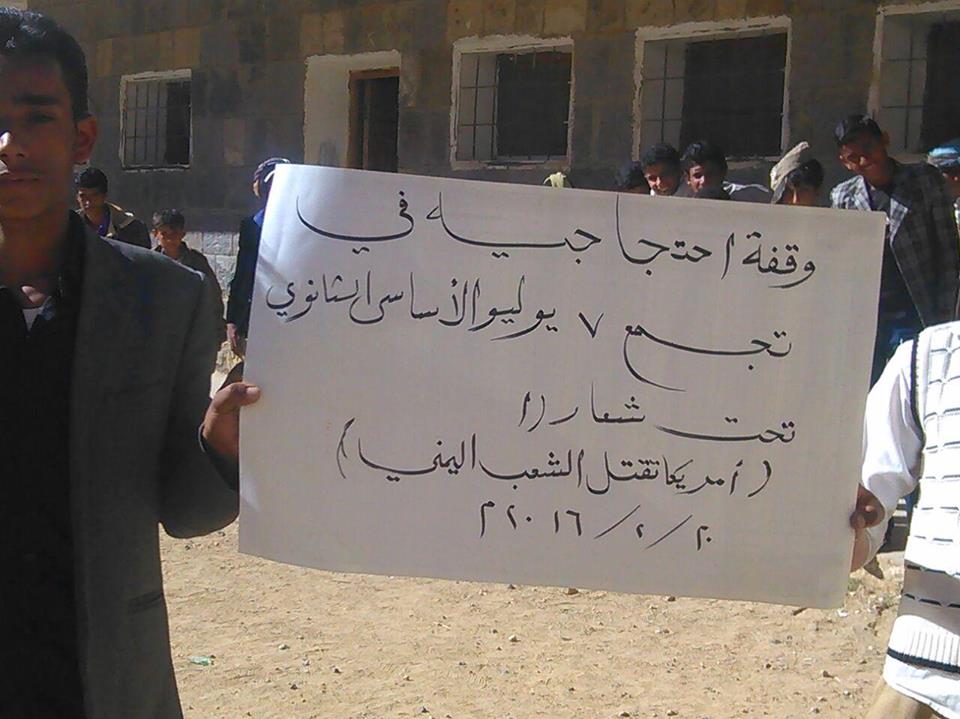 وقفة احتجاجيه في
تجمع ٧ يوليو الأساسي الثانوي
تحت شعار ((
(أمريكا تقتل الشعب اليمني))
٢٠١٦م